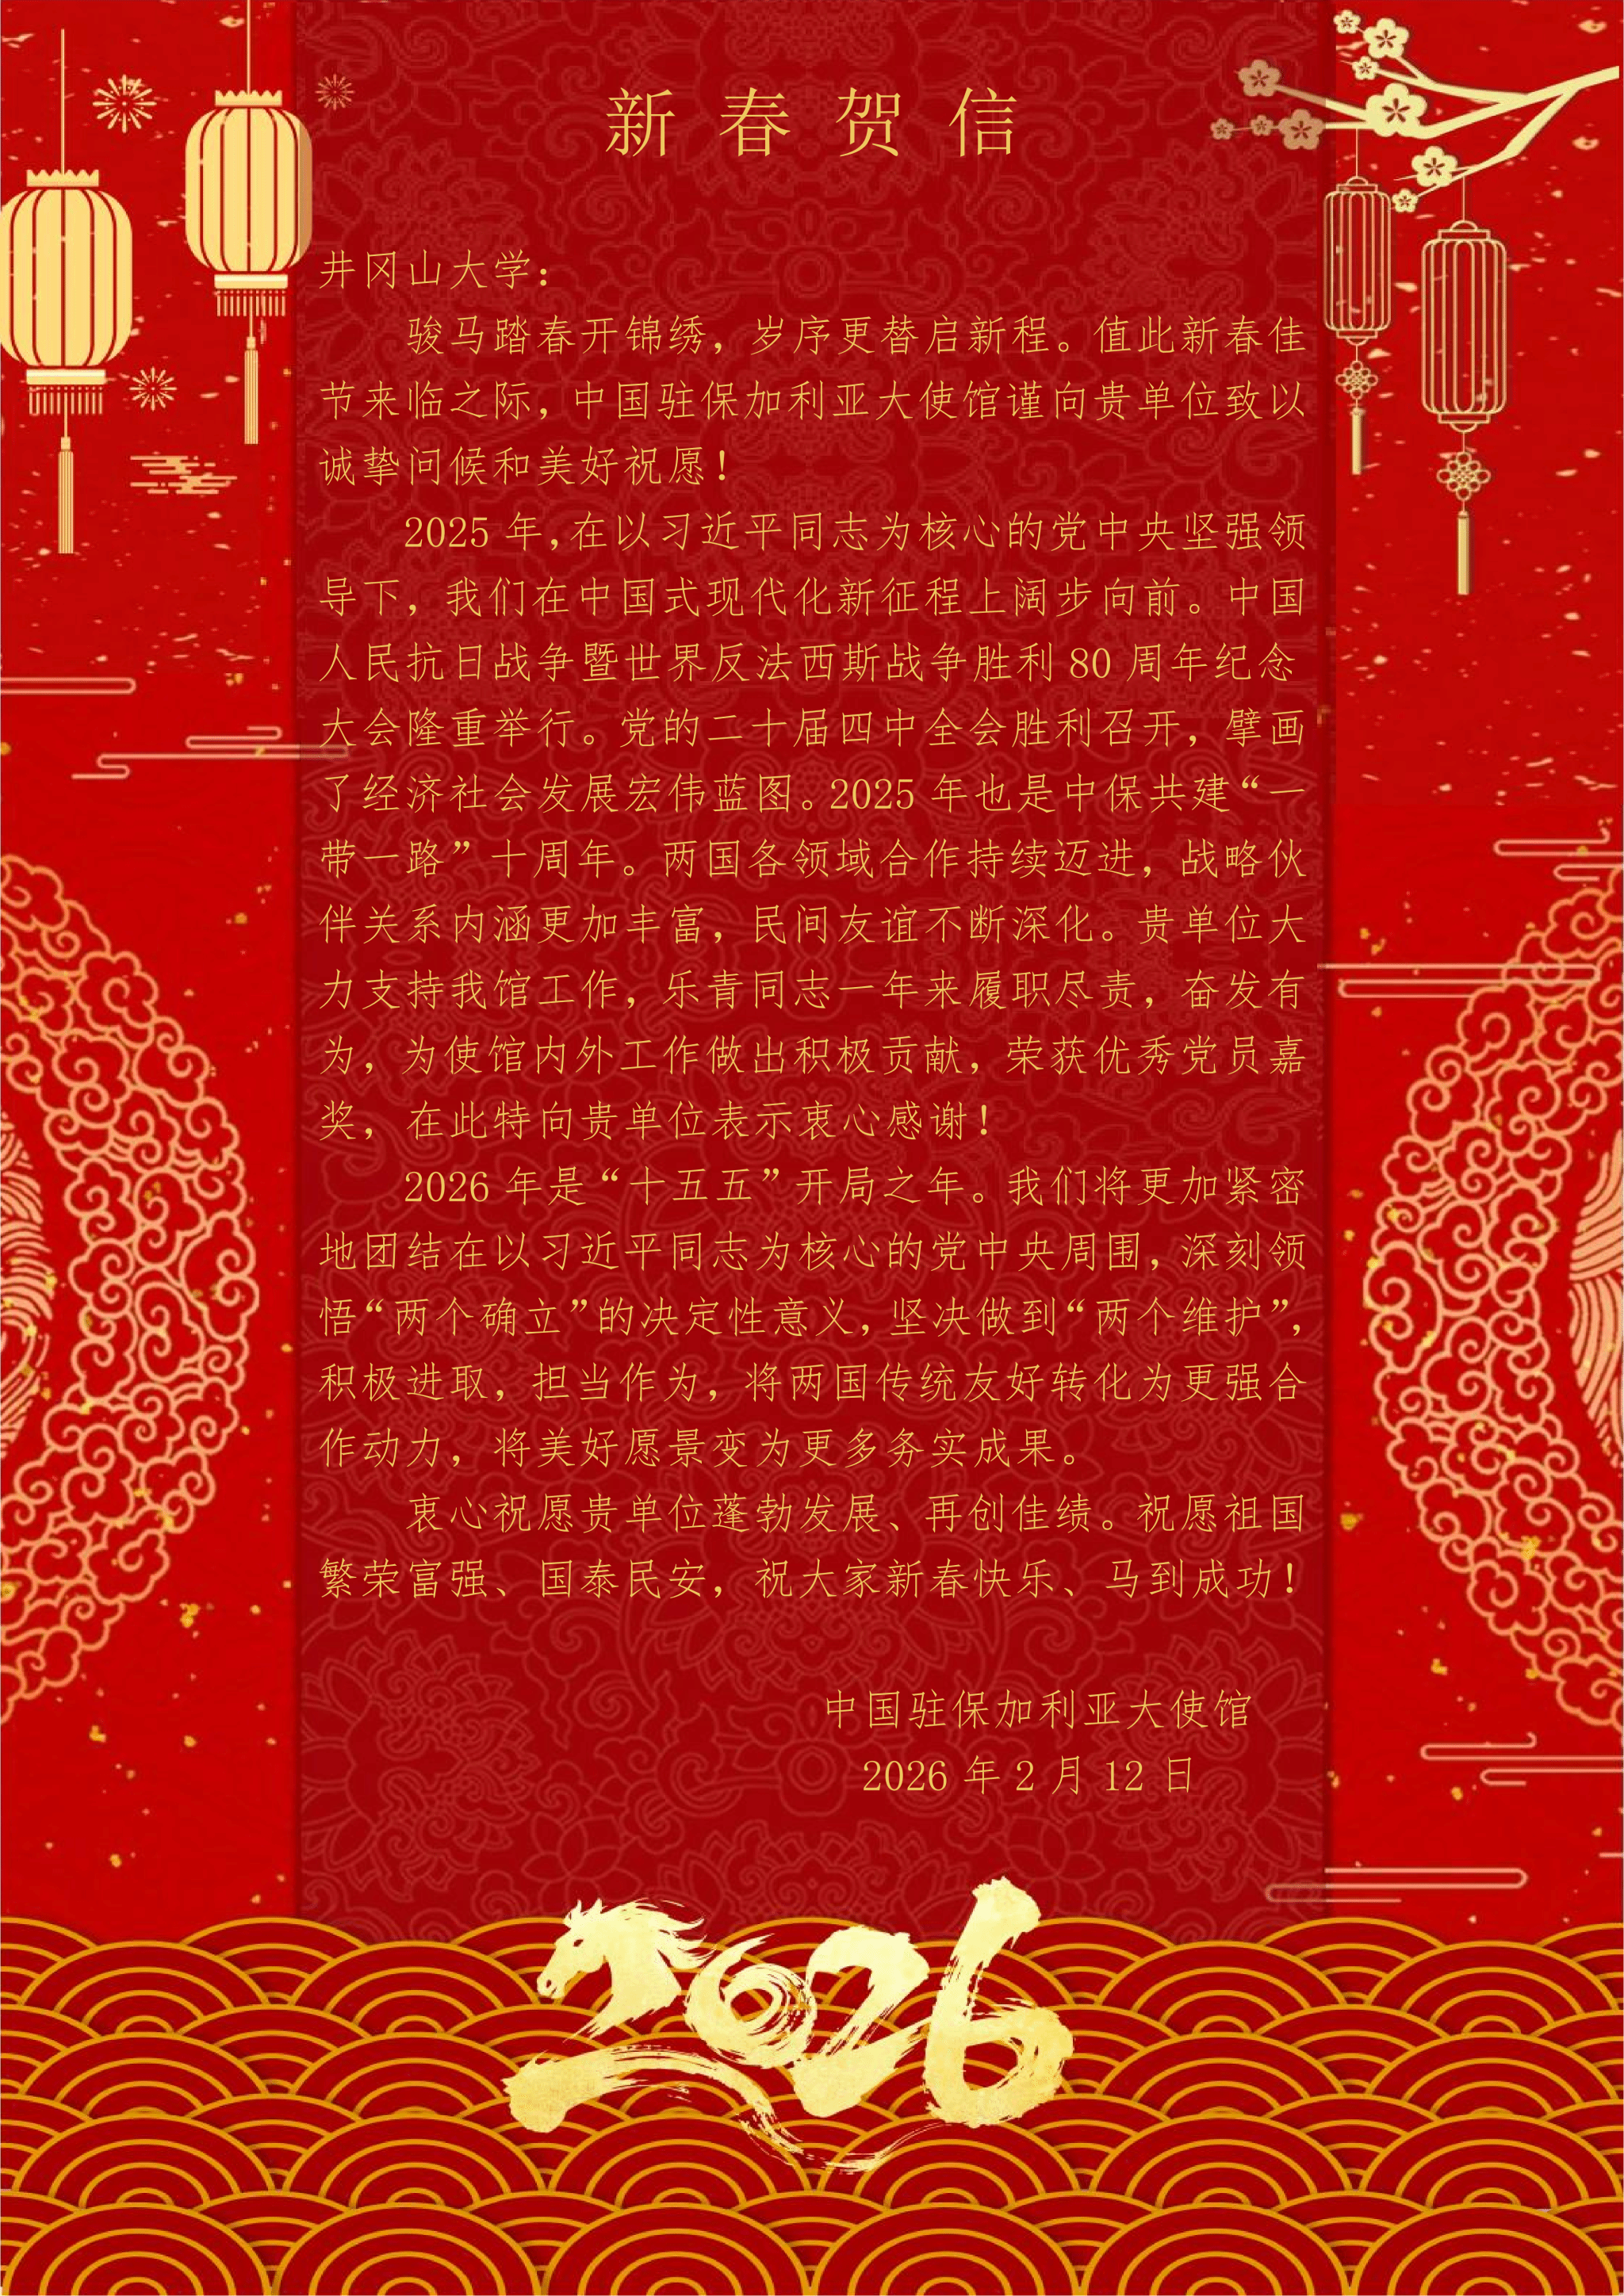 新春贺信
井冈山大学：
骏马踏春开锦绣，岁序更替启新程。值此新春佳
节来临之际，中国驻保加利亚大使馆谨向贵单位致以
诚挚问候和美好祝愿！
2025 年，在以习近平同志为核心的党中央坚强领
导下，我们在中国式现代化新征程上阔步向前。中国
人民抗日战争暨世界反法西斯战争胜利 80 周年纪念
大会隆重举行。党的二十届四中全会胜利召开，擘画
了经济社会发展宏伟蓝图。2025 年也是中保共建“一
带一路”十周年。两国各领域合作持续迈进，战略伙
伴关系内涵更加丰富，民间友谊不断深化。贵单位大
力支持我馆工作，乐青同志一年来履职尽责，奋发有
为，为使馆内外工作做出积极贡献，荣获优秀党员嘉
奖，在此特向贵单位表示衷心感谢！
2026 年是“十五五”开局之年。我们将更加紧密
地团结在以习近平同志为核心的党中央周围，深刻领
悟“两个确立”的决定性意义，坚决做到“两个维护”，
积极进取，担当作为，将两国传统友好转化为更强合
作动力，将美好愿景变为更多务实成果。
衷心祝愿贵单位蓬勃发展、再创佳绩。祝愿祖国
繁荣富强、国泰民安，祝大家新春快乐、马到成功！
中国驻保加利亚大使馆
2026 年 2 月 12 日
2026